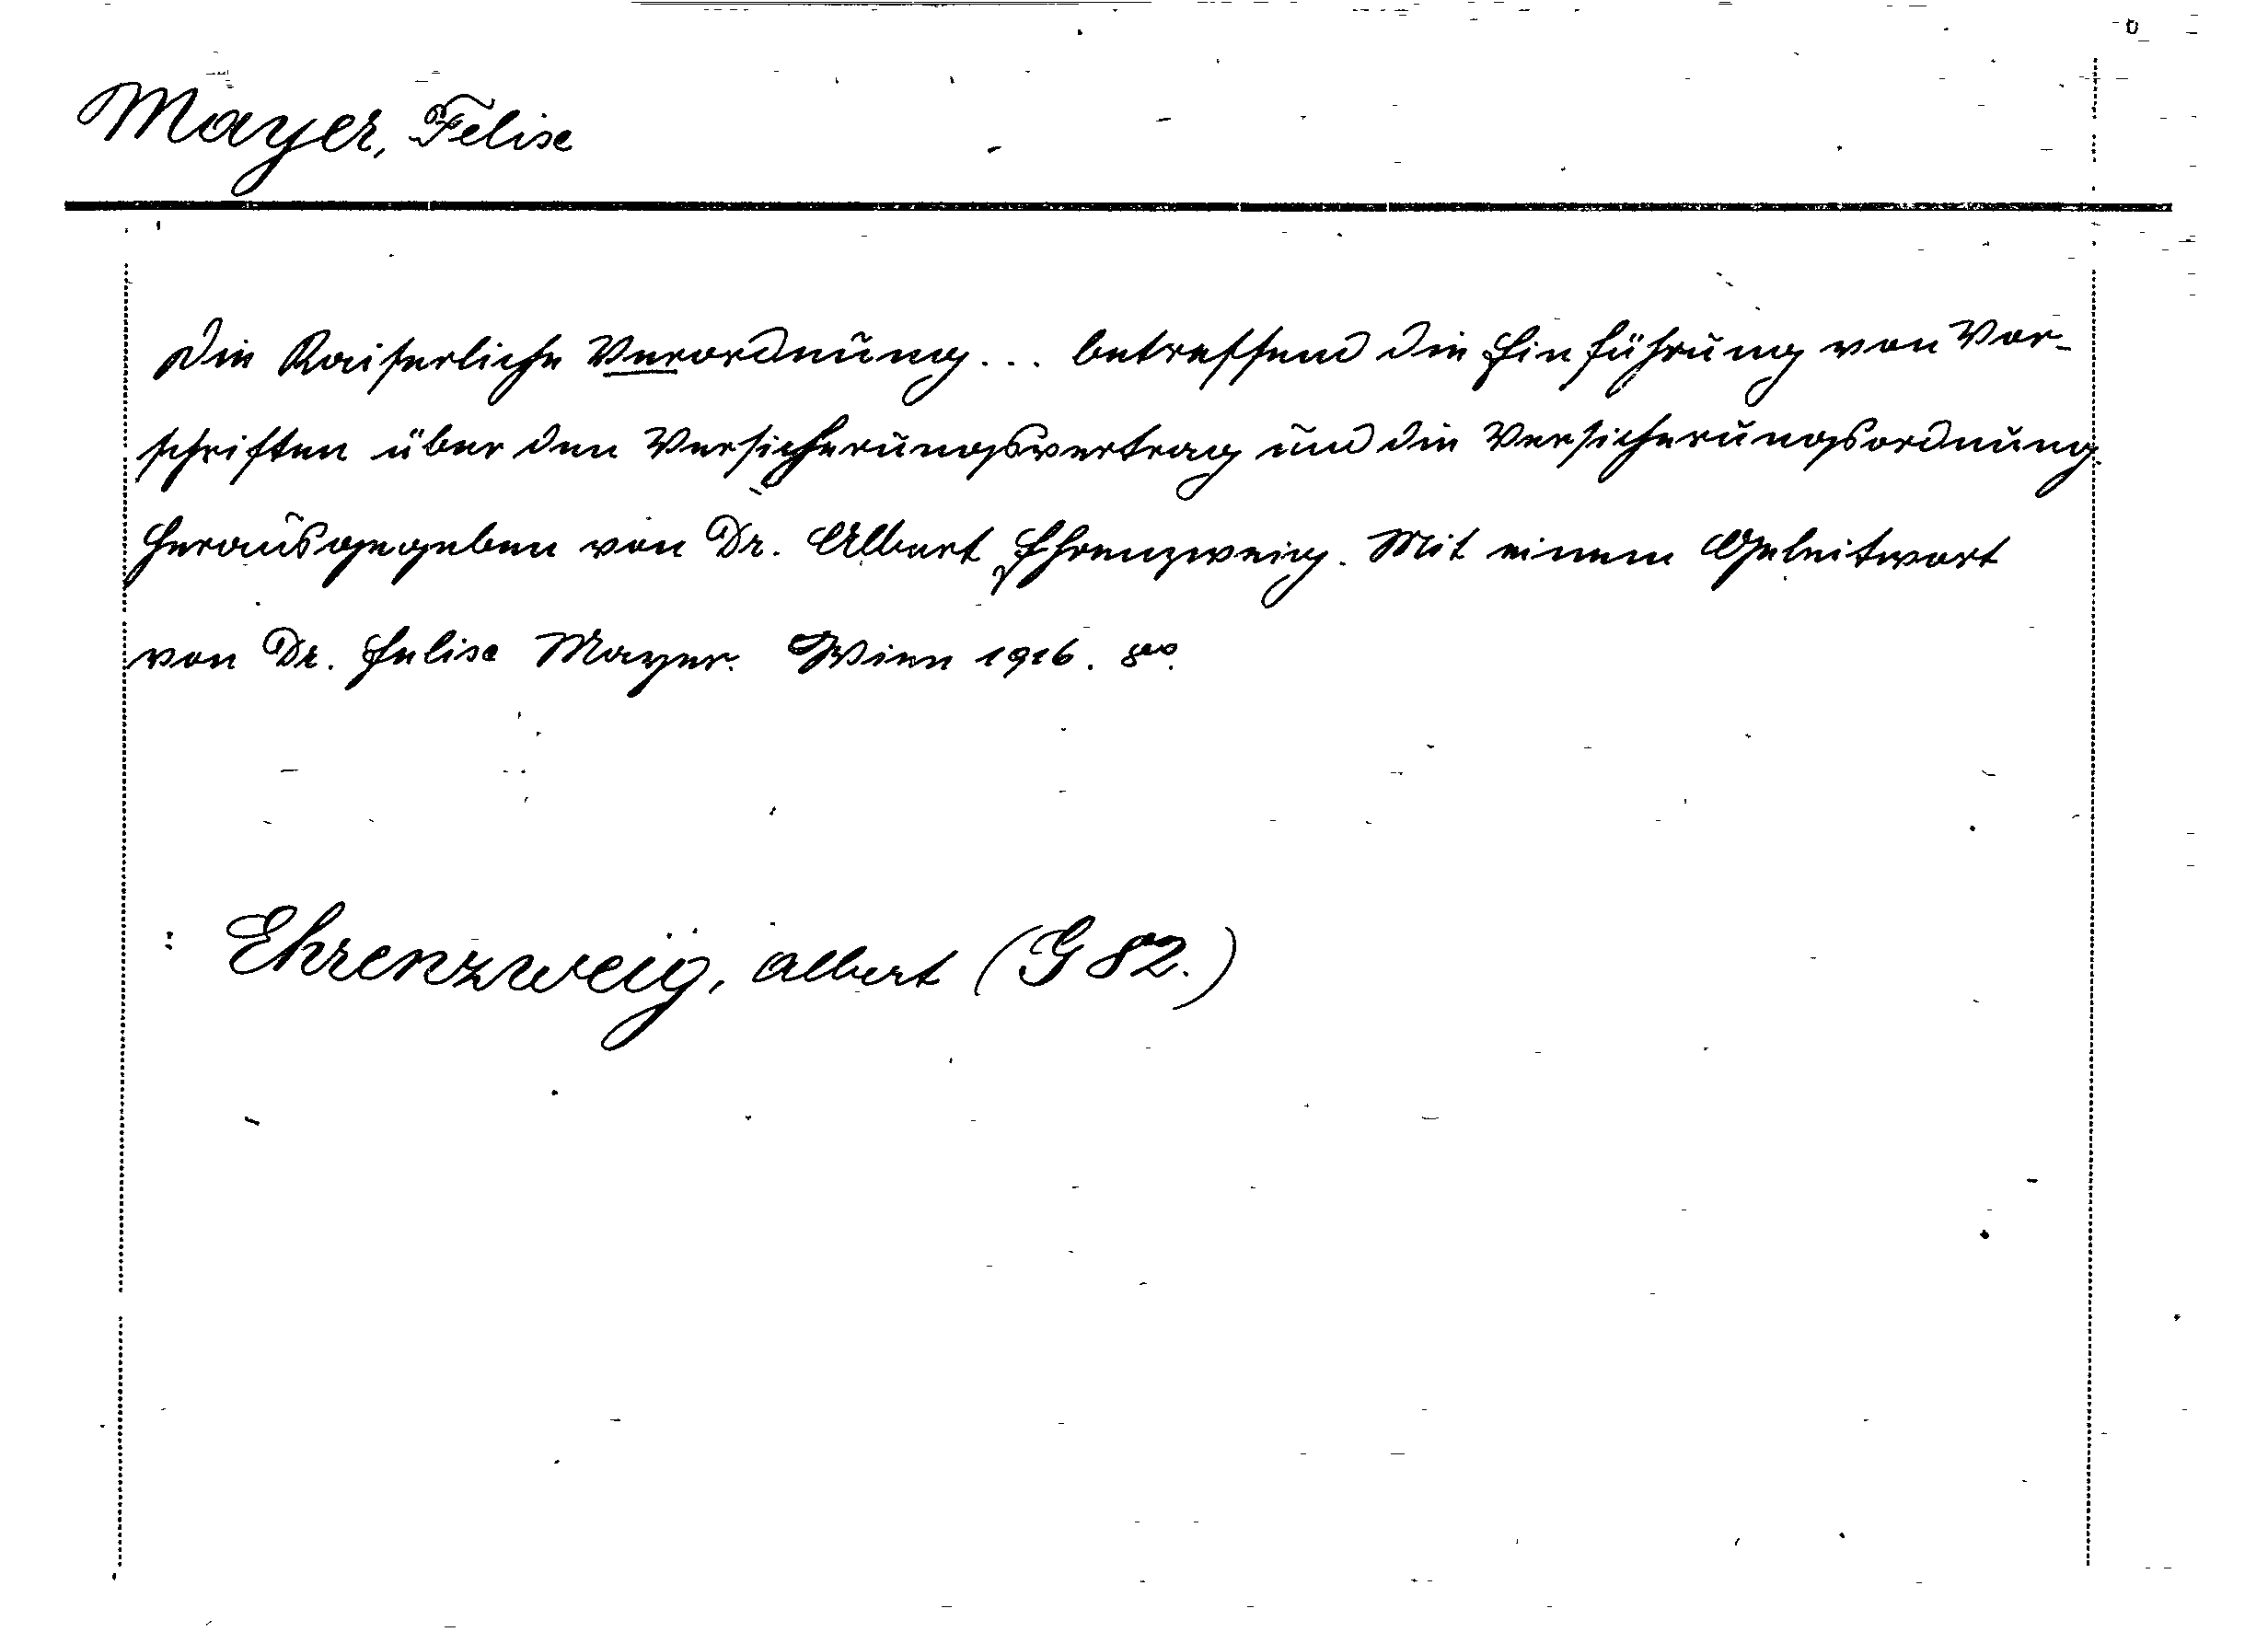 Mayer, Felix
Die Kaiserliche Verordnung... betreffend die Einführung von Vor-
schriften über den Versicherungsvertrag und die Versicherungsordnung
herausgegeben von Dr. Albert Ehrenzweig. Mit einem Geleitwort
von Dr. Felix Mayer. Wien 1916. 8vo.
: Ehrenzweig, Albert (G 82.)